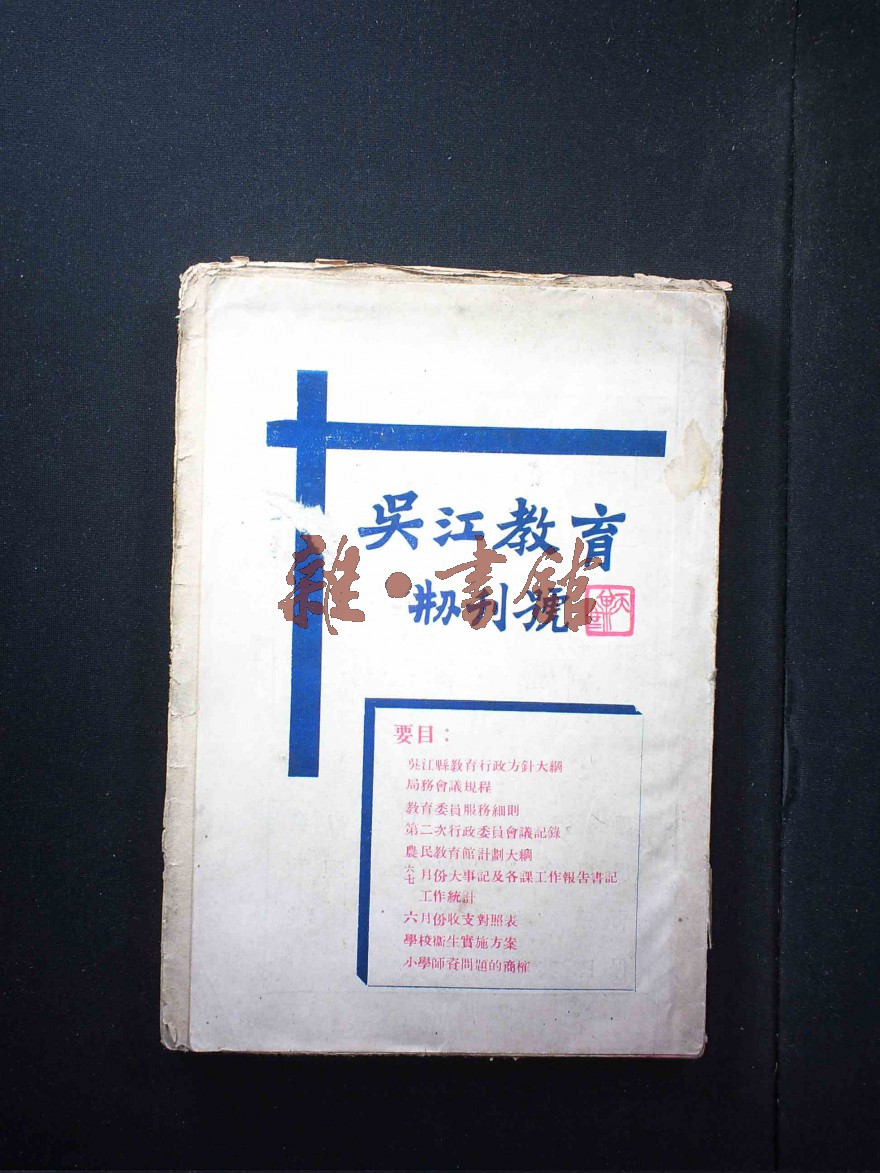 吳江教育
刱刋號
雜·書館
要目：
吳江縣敎育行政方針大綱
局務會議規程
敎育委員服務細則
第二次行政委員會議記錄
農民敎育館計劃大綱
六七月份大事記及各課工作報告書記
工作統計
六月份收支對照表
學校衞生實施方案
小學師資問題的商榷